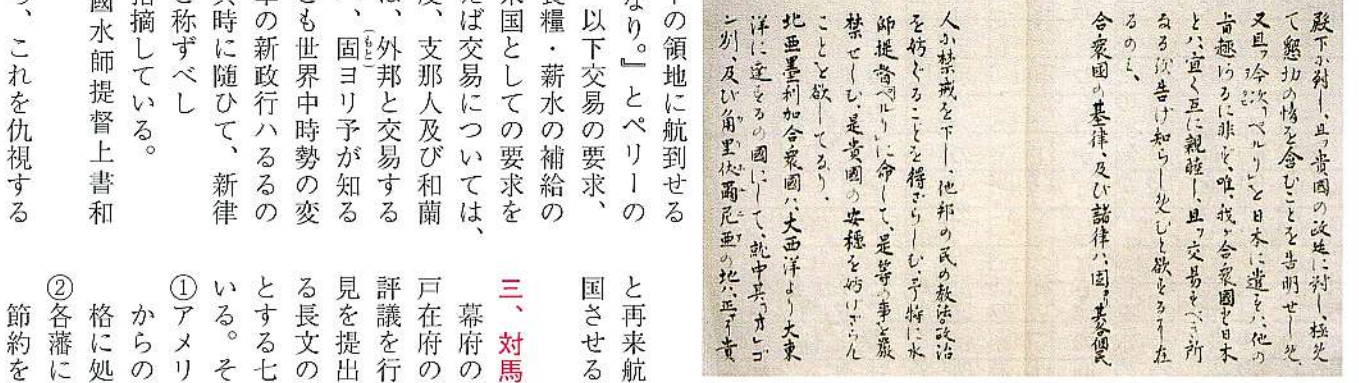 殿下に對し、且つ貴國の政廷に對し、極め
て懇切の情を含むことを告明せしめ、
又且つ今次「ペルリ」を日本に遣すハ、他の
旨趣あるに非ず、唯、我が合衆國と日本
とハ、宜く互に親睦し、且つ交易すべき所
なる 告げ知らしめむと欲するに在
るのミ、
合衆國の基律、及び諸律ハ、固より其各個民
人に禁戒を下し、他邦の民の教法政治
を妨ぐることを得ざらしむ、予特に水
師提督「ペルリ」に命して、是等の事を嚴
禁せしむ、是貴國の安穏を妨けざらん
ことを欲してなり、
北亜墨利加合衆國ハ、大西洋より大東
洋に達するの國にして、就中其「オレゴ
ン」別、及び角里伏爾尼亜の地ハ、正に貴
の領地に航到せる
なり。』とペリーの
以下交易の要求、
糧・薪水の補給の
国としての要求を
ば交易については、
、支那人及び和蘭
、外邦と交易する
、固ヨリ予が知る
もと
も世界中時勢の変
の新政行ハるるの
時に随ひて、新律
称ずべし
摘している。
國水師提督上書和
、これを仇視する
と再来航
国させる
三、対馬
幕府の
戸在府の
評議を行
見を提出
る長文の
とする七
いる。そ
①アメリ
からの
格に処
②各藩に
節約を